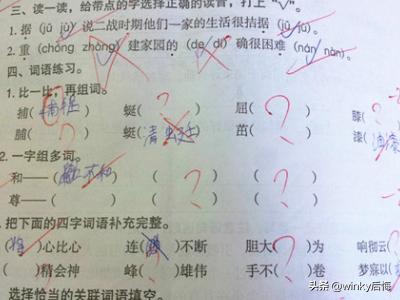 三、读一读，给带点的字选择正确的读音，打上“√”。
1. 据（jū jù）说二战时期他们一家的生活很拮据（jū jù）。
2. 重（chóng zhòng）建家园的（de dí）确很困难（nán nàn）。
四、词语练习。
1. 比一比，再组词。
捕（捕捉） 蜓（ ？ ） 屈（ ？ ） 膝（
脯（ ？ ） 蜓（清 ） 茁（ ？ ） 漆（油漆
2. 一字组多词。
和——（ 和）（ ？ ）（ ？ ）（
尊——（ ）（ ）（ ）（
把下面的四字词语补充完整。
（将）心比心 连（ ）不断 胆大（ ）为 响彻云（
（ ）精会神 峰（ ）雄伟 手不（ ）卷 梦寐以（
选择恰当的关联词语填空。
头条 @winky后悔